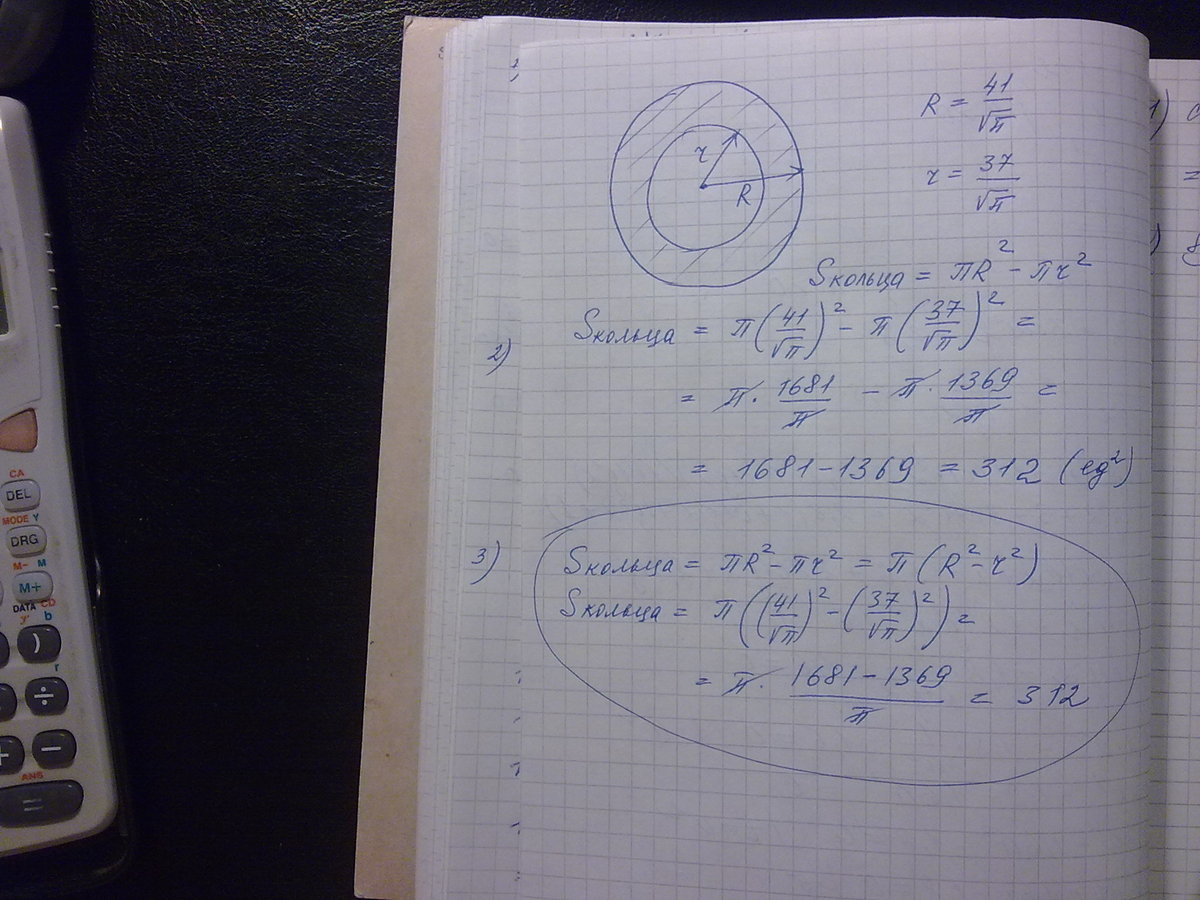 R = 41/√π
r = 37/√π
r
R
Sкольца = πR² - πr²
2) Sкольца = π(41/√π)² - π(37/√π)² =
= π · 1681/π - π · 1369/π =
= 1681 - 1369 = 312 (ед²)
3) Sкольца = πR² - πr² = π(R² - r²)
Sкольца = π((41/√π)² - (37/√π)²) =
= π · (1681 - 1369)/π = 312
1)
=
CA
DEL
MODE Y
DRG
M- M
M+
DATA CD
y' b
)
r
÷
+ −
ANS
=